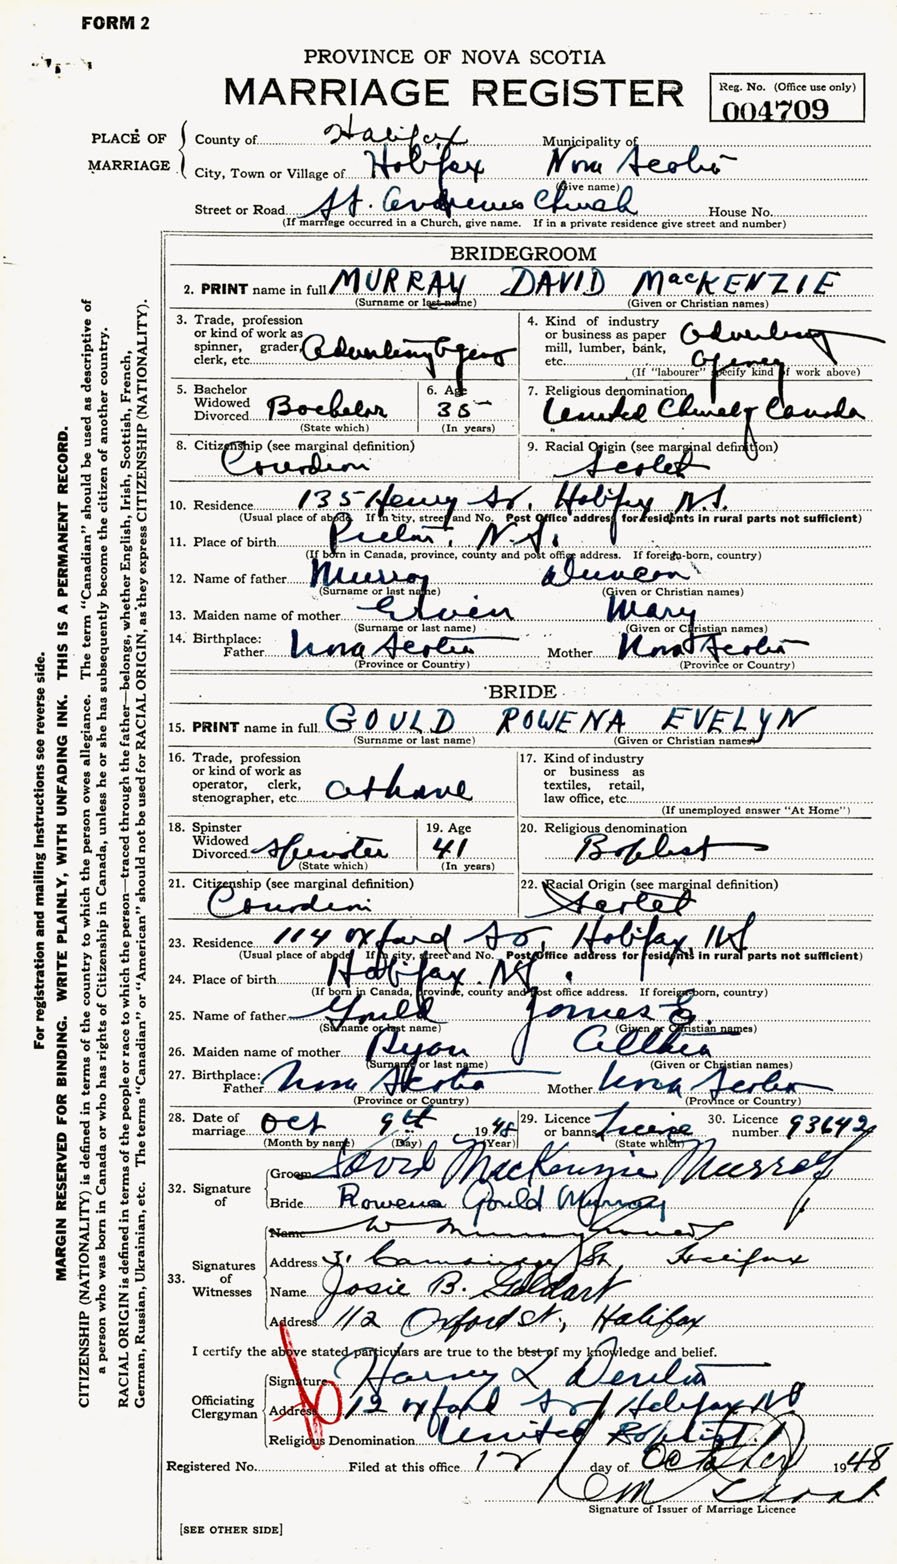 FORM 2
PROVINCE OF NOVA SCOTIA
MARRIAGE REGISTER
Reg. No. (Office use only)
004709
PLACE OF MARRIAGE
County of Halifax Municipality of
City, Town or Village of Halifax Nova Scotia
(Give name)
Street or Road St. Andrews Church House No.
(If marriage occurred in a Church, give name. If in a private residence give street and number)
BRIDEGROOM
2. PRINT name in full MURRAY DAVID MacKENZIE
(Surname or last name) (Given or Christian names)
3. Trade, profession or kind of work as spinner, grader, clerk, etc. Advertising
4. Kind of industry or business as paper mill, lumber, bank, etc. Advertising Agency
(If "labourer" specify kind of work above)
5. Bachelor Widowed Divorced Bachelor
(State which)
6. Age 35
(In years)
7. Religious denomination United Church of Canada
8. Citizenship (see marginal definition) Canadian
9. Racial Origin (see marginal definition) Scotch
10. Residence 135 Henry St. Halifax N.S.
(Usual place of abode. If in city, street and No. Post Office address for residents in rural parts not sufficient)
11. Place of birth Pictou, N.S.
(If born in Canada, province, county and post office address. If foreign-born, country)
12. Name of father Murray Duncan
(Surname or last name) (Given or Christian names)
13. Maiden name of mother Mary
(Surname or last name) (Given or Christian names)
14. Birthplace: Father Nova Scotia Mother Nova Scotia
(Province or Country) (Province or Country)
BRIDE
15. PRINT name in full GOULD ROWENA EVELYN
(Surname or last name) (Given or Christian names)
16. Trade, profession or kind of work as operator, clerk, stenographer, etc. at home
17. Kind of industry or business as textiles, retail, law office, etc.
(If unemployed answer "At Home")
18. Spinster Widowed Divorced Spinster
(State which)
19. Age 41
(In years)
20. Religious denomination Baptist
21. Citizenship (see marginal definition) Canadian
22. Racial Origin (see marginal definition) Scotch
23. Residence 114 Oxford St, Halifax, NS
(Usual place of abode. If in city, street and No. Post Office address for residents in rural parts not sufficient)
24. Place of birth Halifax N.S.
(If born in Canada, province, county and post office address. If foreign-born, country)
25. Name of father Gould James E.
(Surname or last name) (Given or Christian names)
26. Maiden name of mother Ryan
(Surname or last name) (Given or Christian names)
27. Birthplace: Father Nova Scotia Mother Nova Scotia
(Province or Country) (Province or Country)
28. Date of marriage Oct 9th 1948
(Month by name) (Day) (Year)
29. Licence or banns License
(State which)
30. Licence number 93642
32. Signature of
Groom David MacKenzie Murray
Bride Rowena Gould Murray
33. Signatures of Witnesses
Name W Murray
Address 31 St. Halifax
Name Josie B. Geldart
Address 112 Oxford St., Halifax
I certify the above stated particulars are true to the best of my knowledge and belief.
Officiating Clergyman
Signature Harvey L Denton
Address 12 Oxford St, Halifax NS
Religious Denomination United Baptist
Registered No. Filed at this office 12 day of October 1948
Signature of Issuer of Marriage Licence
[SEE OTHER SIDE]
For registration and mailing instructions see reverse side.
MARGIN RESERVED FOR BINDING. WRITE PLAINLY, WITH UNFADING INK. THIS IS A PERMANENT RECORD.
CITIZENSHIP (NATIONALITY) is defined in terms of the country to which the person owes allegiance. The term "Canadian" should be used as descriptive of
a person who was born in Canada or who has rights of Citizenship in Canada, unless he or she has subsequently become the citizen of another country.
RACIAL ORIGIN is defined in terms of the people or race to which the person—traced through the father—belongs, whether English, Irish, Scottish, French,
German, Russian, Ukrainian, etc. The terms "Canadian" or "American" should not be used for RACIAL ORIGIN, as they express CITIZENSHIP (NATIONALITY).